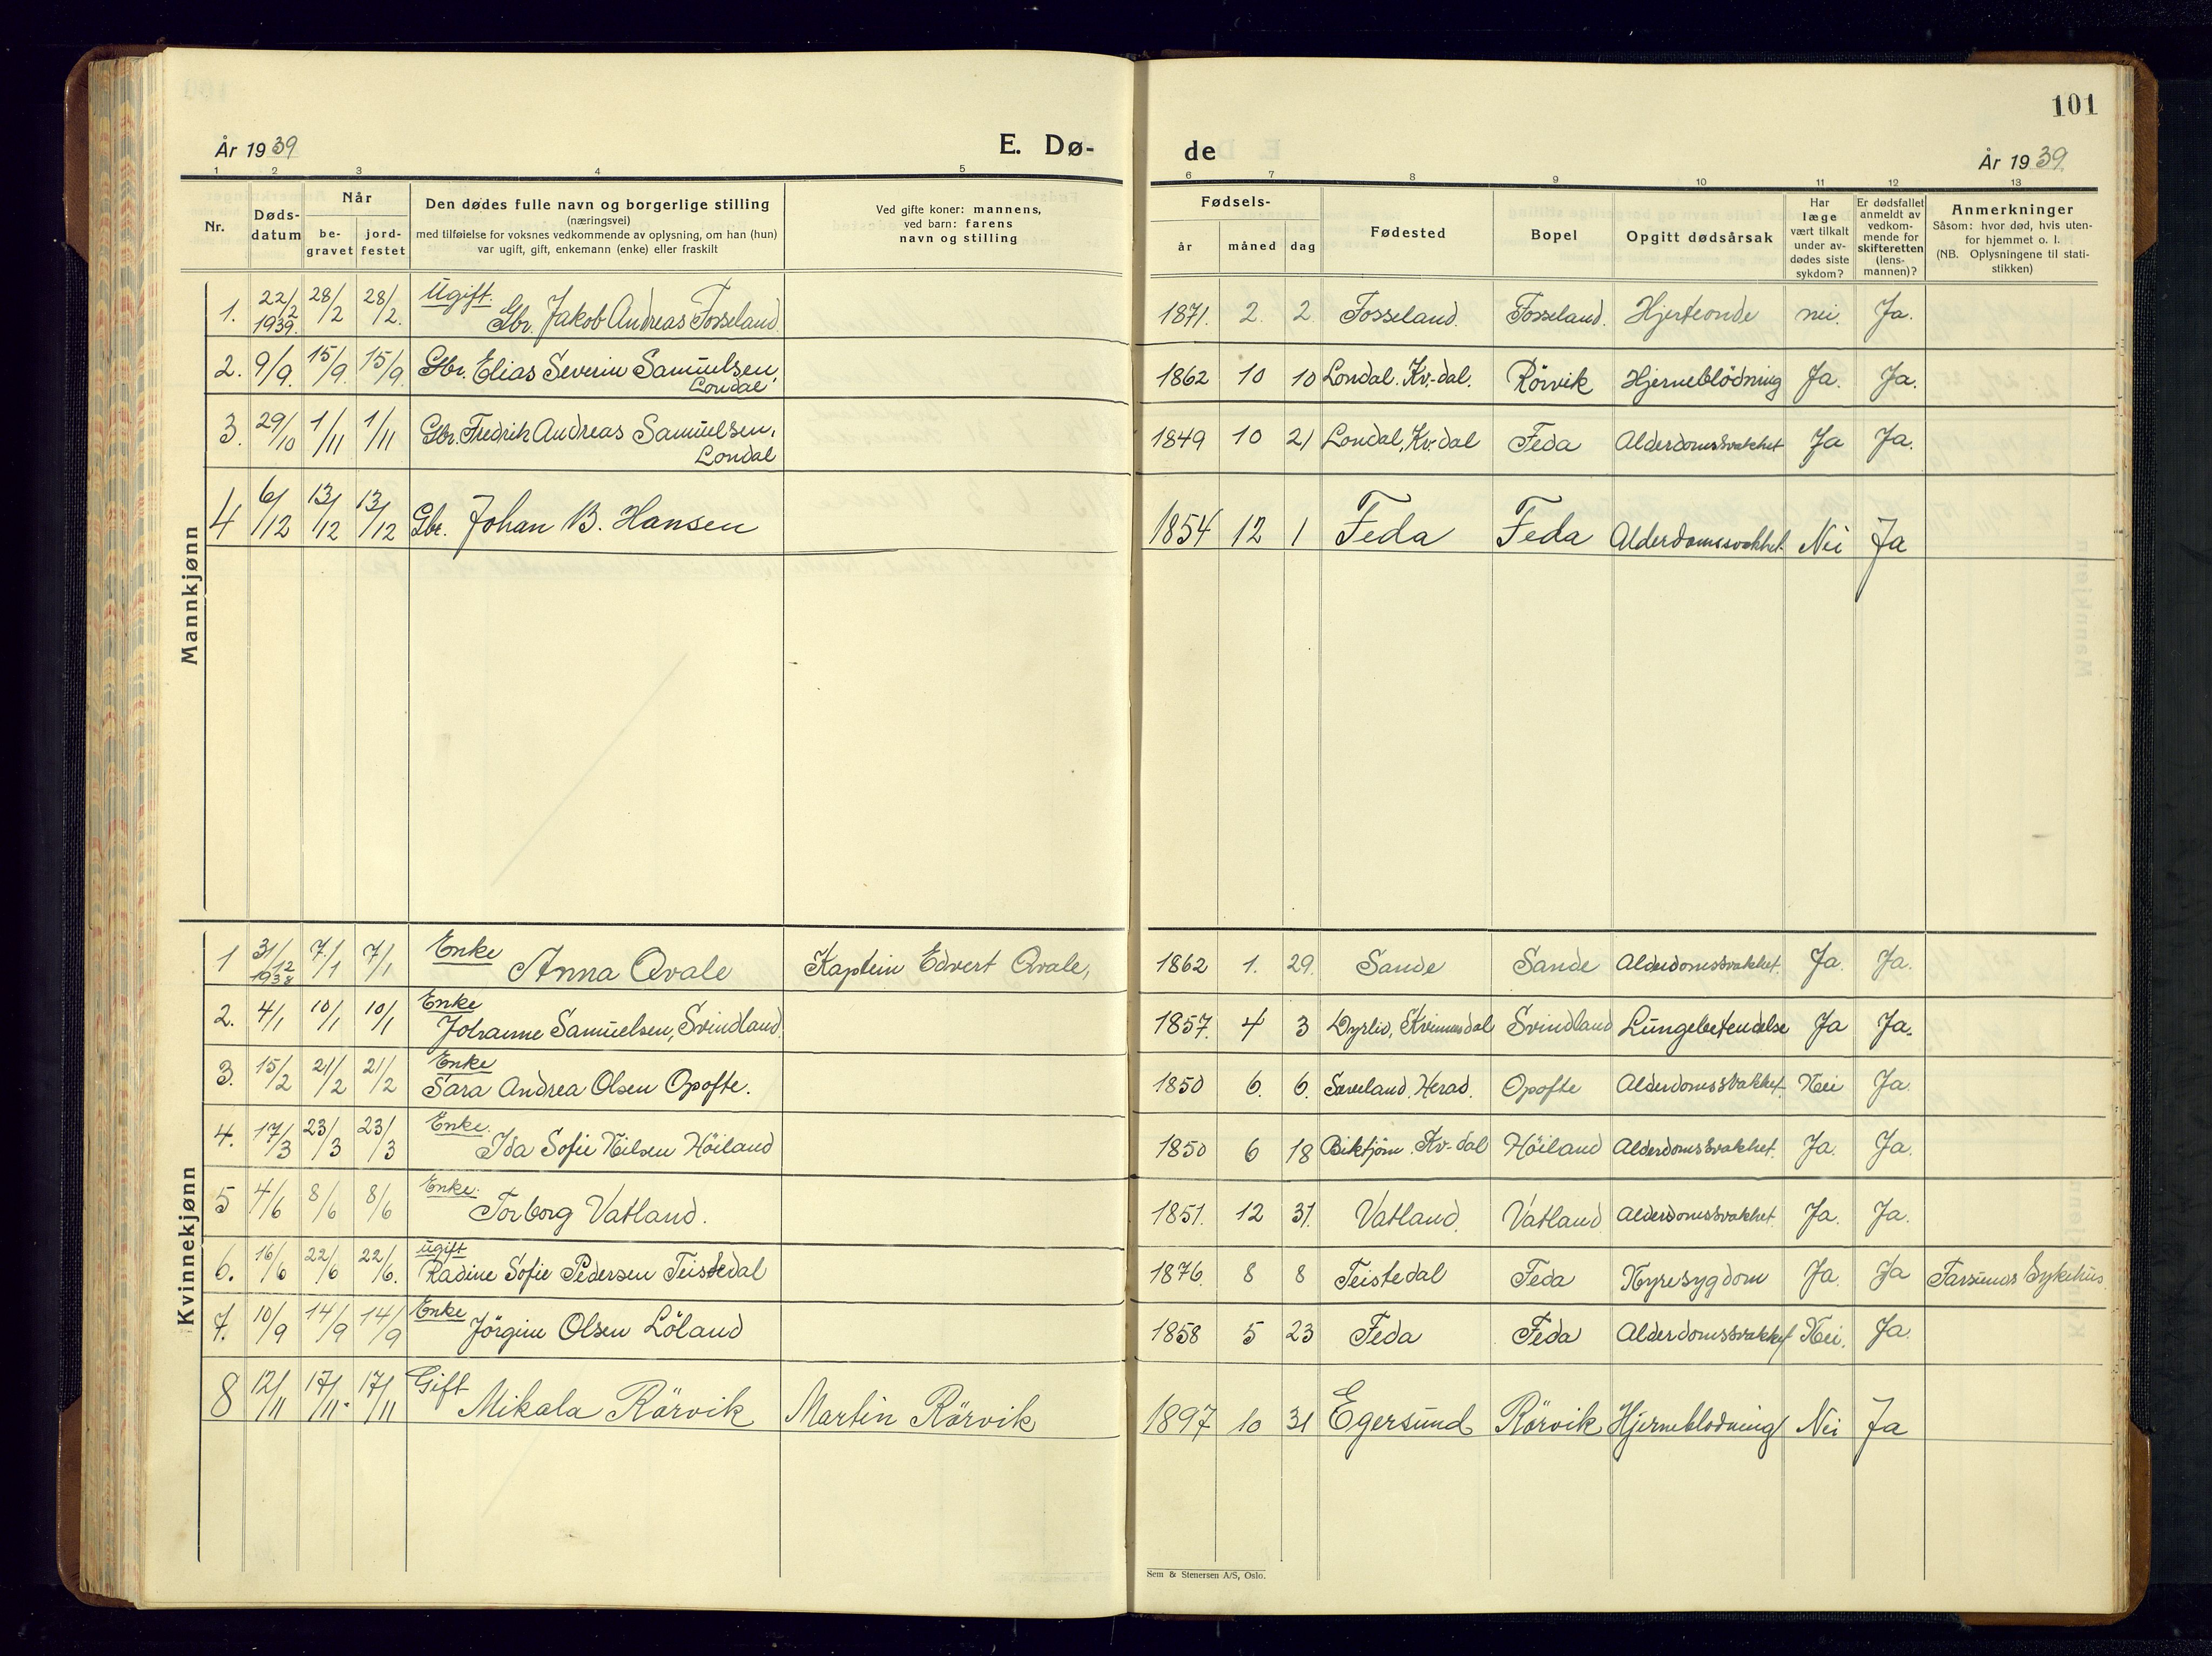 101
År 1939
E. Dø-
de
År 1939
1 2 3 4 5 6 7 8 9 10 11 12 13
Nr.
Døds-
datum
Når
be-
gravet
jord-
festet
Den dødes fulle navn og borgerlige stilling
(næringsvei)
med tilføielse for voksnes vedkommende av oplysning, om han (hun)
var ugift, gift, enkemann (enke) eller fraskilt
Ved gifte koner: mannens,
ved barn: farens
navn og stilling
Fødsels-
år måned dag
Fødested
Bopel
Opgitt dødsårsak
Har
læge
vært tilkalt
under av-
dødes siste
sykdom?
Er dødsfallet
anmeldt av
vedkom-
mende for
skifteretten
(lens-
mannen)?
Anmerkninger
Såsom: hvor død, hvis uten-
for hjemmet o. l.
(NB. Oplysningene til stati-
stikken)
Mannkjønn
1. 22/2 1939. 28/2 28/2. Ugift. Gbr. Jakob Andreas Fosseland. 1871. 2. 2. Fosseland. Fosseland. Hjerteonde nei. Ja.
2. 9/9. 15/9. 15/9. Gbr. Elias Severin Samuelsen, Londal 1862 10 10 Londal. Kv.-dal. Rörvik Hjerneblödning Ja. Ja.
3. 29/10 1/11 1/11 Gbr. Fredrik Andreas Samuelsen, Londal 1849 10 21 Londal, Kv.dal Feda Alderdomssvakhet Ja Ja.
4 6/12 13/12 13/12 Gbr. Johan B. Hansen 1854 12 1 Feda Feda Alderdomssvakhet. Nei Ja
Kvinnekjønn
1 31/12 1938 7/1 7/1 Enke Anna Qvale Kaptein Edvert Qvale, 1862 1. 29. Sande Sande Alderdomssvakhet. Ja. Ja.
2. 4/1 10/1 10/1 Enke Johanne Samuelsen, Svindland. 1857. 4 3 Dyrlid, Kvinnesdal Svindland Lungebetendelse Ja Ja.
3. 15/2 21/2 21/2 Enke Sara Andrea Olsen Opofte. 1850 6. 6. Herad. Opofte Alderdomssvakhet. Nei Ja.
4. 17/3 23/3 23/3 Enke. Ida Sofie Nilsen Höiland 1850 6 18 Biktjörn. Kv-dal Höiland Alderdomssvakhet. Ja. Ja.
5 4/6 8/6 8/6 Enke. Torborg Vatland. 1851. 12 31. Vatland. Vatland Alderdomssvakhet. Ja. Ja.
6. 16/6 22/6 22/6. ugift Radine Sofie Pedersen Teistedal 1876. 8 8 Teistedal Feda Nyresygdom Ja. Ja Farsunds Sykehus.
7. 10/9 14/9 14/9 Enke Jörgine Olsen Löland 1858 5 23 Feda Feda Alderdomssvakhet Nei. Ja.
8 12/11 17/11. 17/11 Gift Mikala Rörvik Martin Rörvik 1897 10 31 Egersund Rörvik Hjerneblodning Nei Ja
Sem & Stenersen A/S, Oslo.